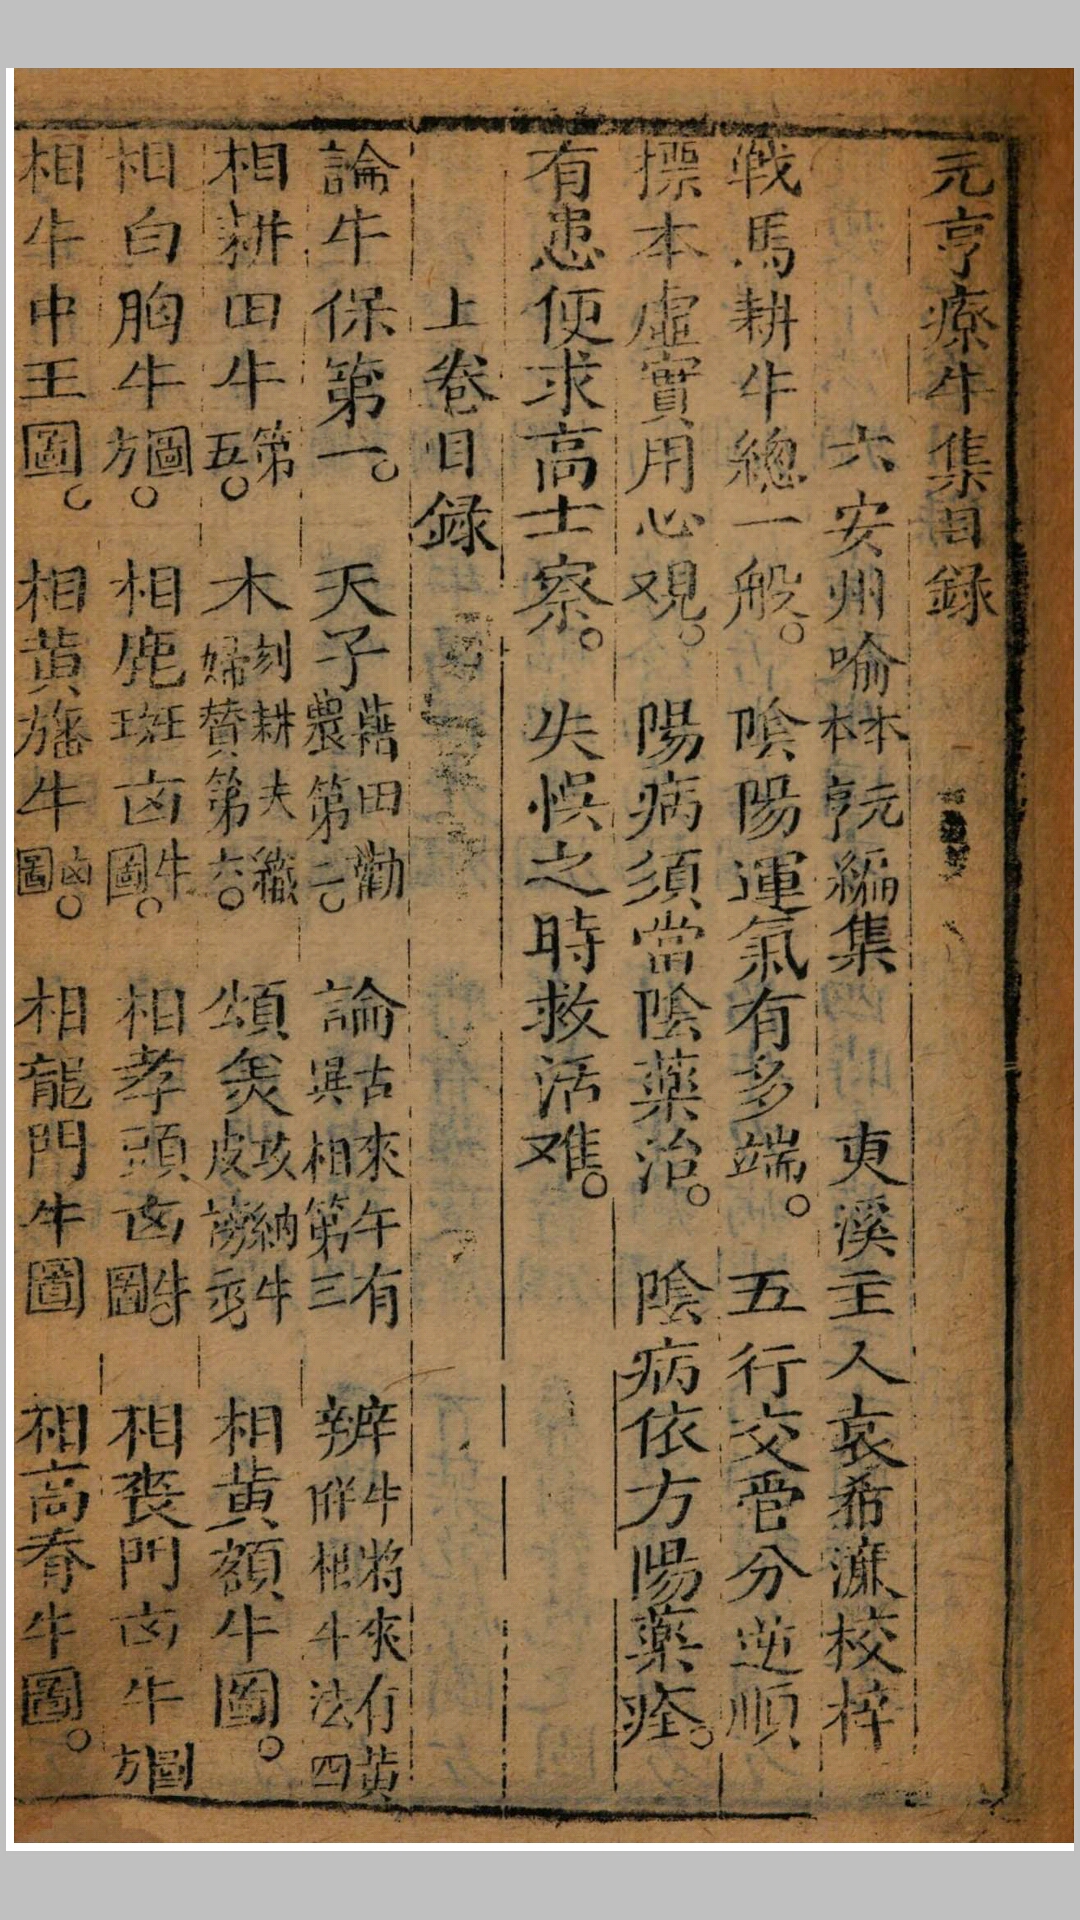 元亨療牛集目録
六安州喻本元本亨編集 東溪主人袁希濂校梓
戦馬耕牛總一般。 陰陽運氣有多端。 五行交壆分逆順
摽本虛實用心覌。 陽病須當陰藥治。 陰病依方陽藥痊。
有患便求高士察。 失悮之時救活难。
上卷目録
論牛保第一。 天子藉田勸農第二。 論古來午有異相第三 辨牛將來有黄牉相牛法四
相耕田牛第五。 木刻耕夫織婦賛第六。 頌攻納牛皮 相黄額牛圖。
相白胸牛圖方。 相鹿斑卤牛圖。 相孝頭卤牛圖。 相喪門卤牛圖方
相牛中王圖。 相黄旛牛卤圖。 相龍門牛圖 相高脊牛圖。